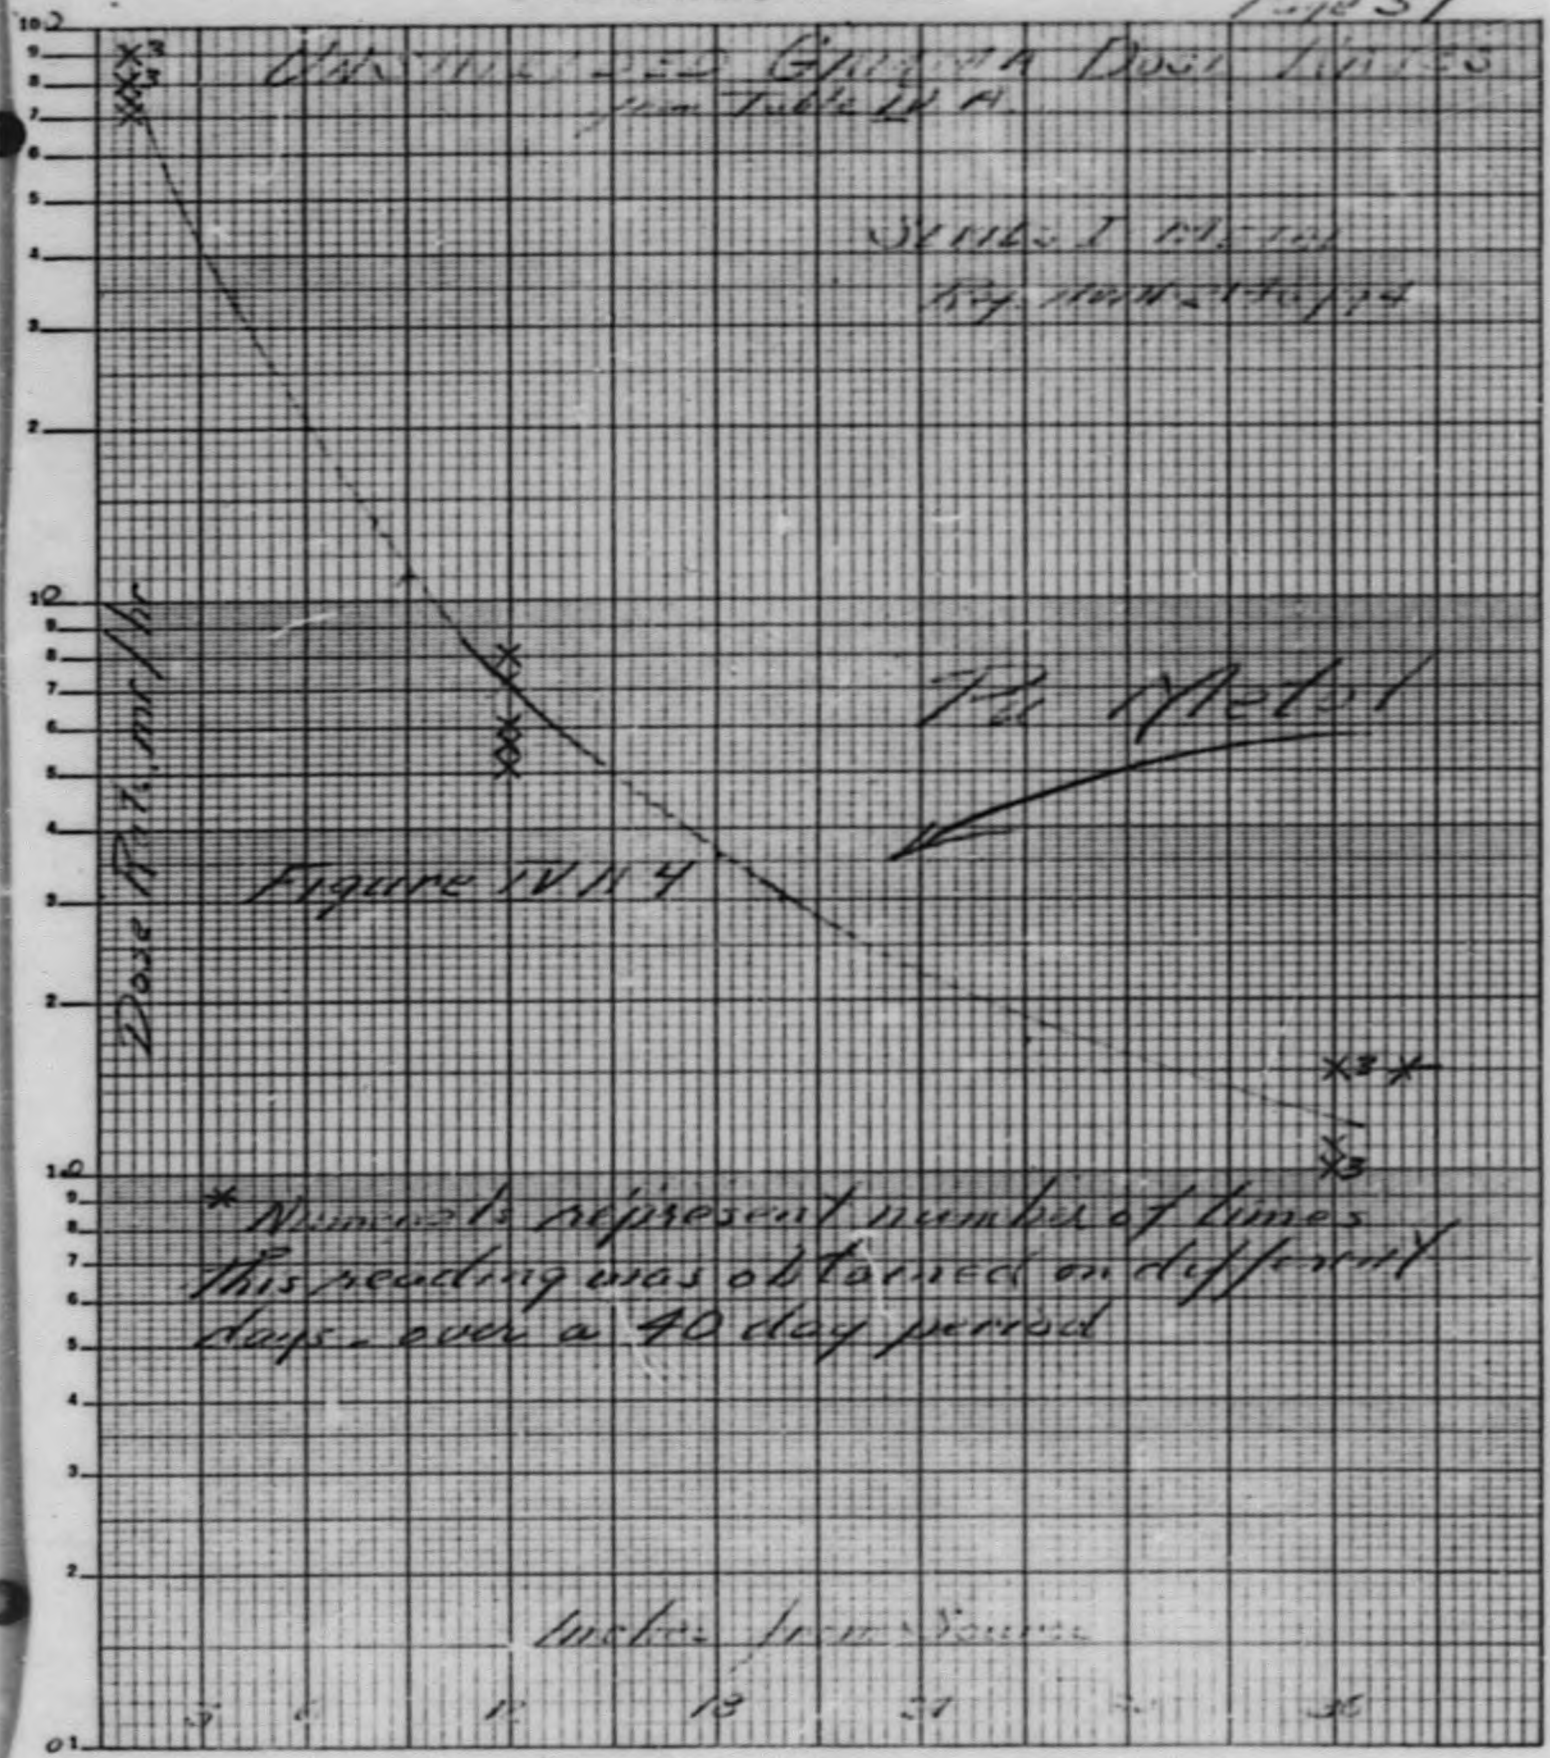 Page 31
Unshielded Gamma Dose Rates
from Table IV A
Series I Metal
Pu Metal
Figure IV A 4
Dose Rate, mr/hr
* Numerals represent number of times
this reading was obtained on different
days - over a 40 day period
Inches from Source
3 6 12 18 24 30 36
100
9
8
7
6
5
4
3
2
10
9
8
7
6
5
4
3
2
1.0
9
8
7
6
5
4
3
2
0.1
X3
X3
X3 *
X3